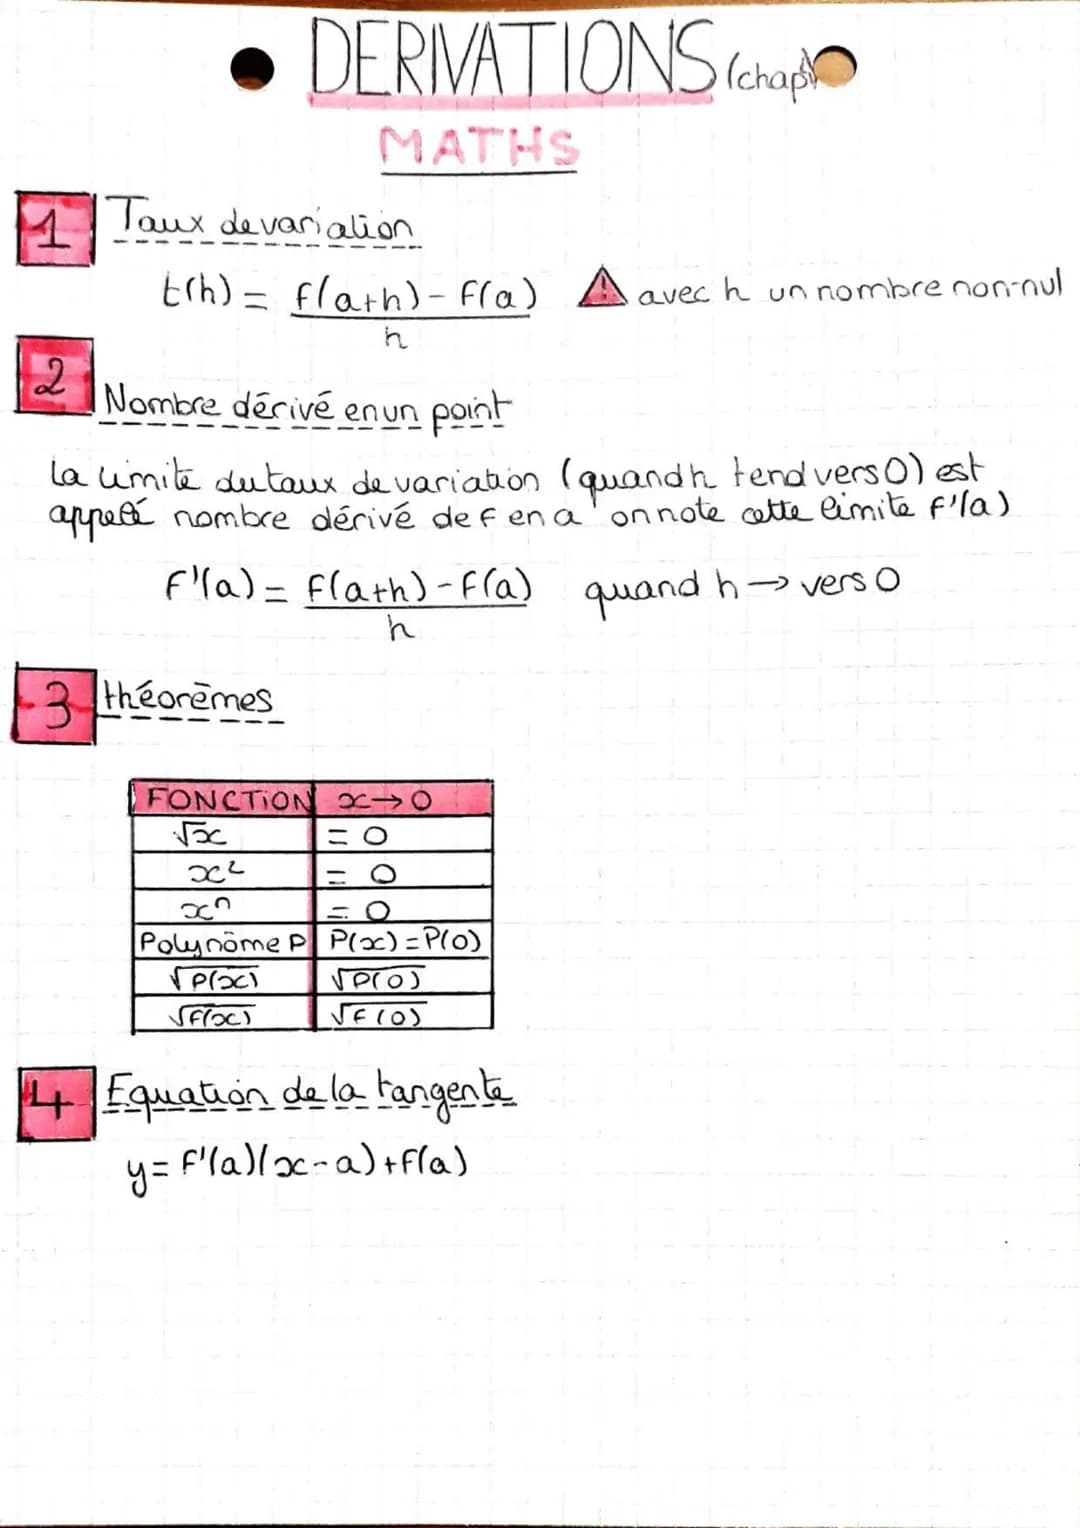 DERIVATIONS (chap
MATHS
1 Taux de variation
t(h) = f(a+h) - f(a) / h ⚠ avec h un nombre non-nul
2 Nombre dérivé en un point
La limite du taux de variation (quand h tend vers 0) est
appelé nombre dérivé de f en a on note cette limite f'(a)
f'(a) = f(a+h) - f(a) / h quand h → vers 0
3 théorèmes
FONCTION x → 0
√x = 0
x² = 0
xⁿ = 0
Polynôme P P(x) = P(0)
√P(x) √P(0)
√f(x) √f(0)
4 Equation de la tangente
y = f'(a)(x - a) + f(a)